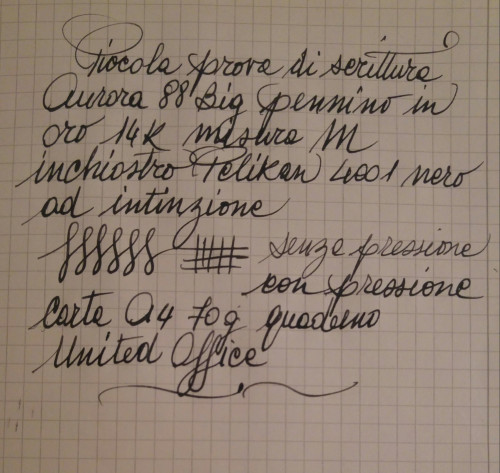 Piccola prova di scrittura
Aurora 88 Big pennino in
oro 14K misura M
inchiostro Pelikan 4001 nero
ad intinzione
senza pressione
con pressione
Carta A4 70g quaderno
United Office